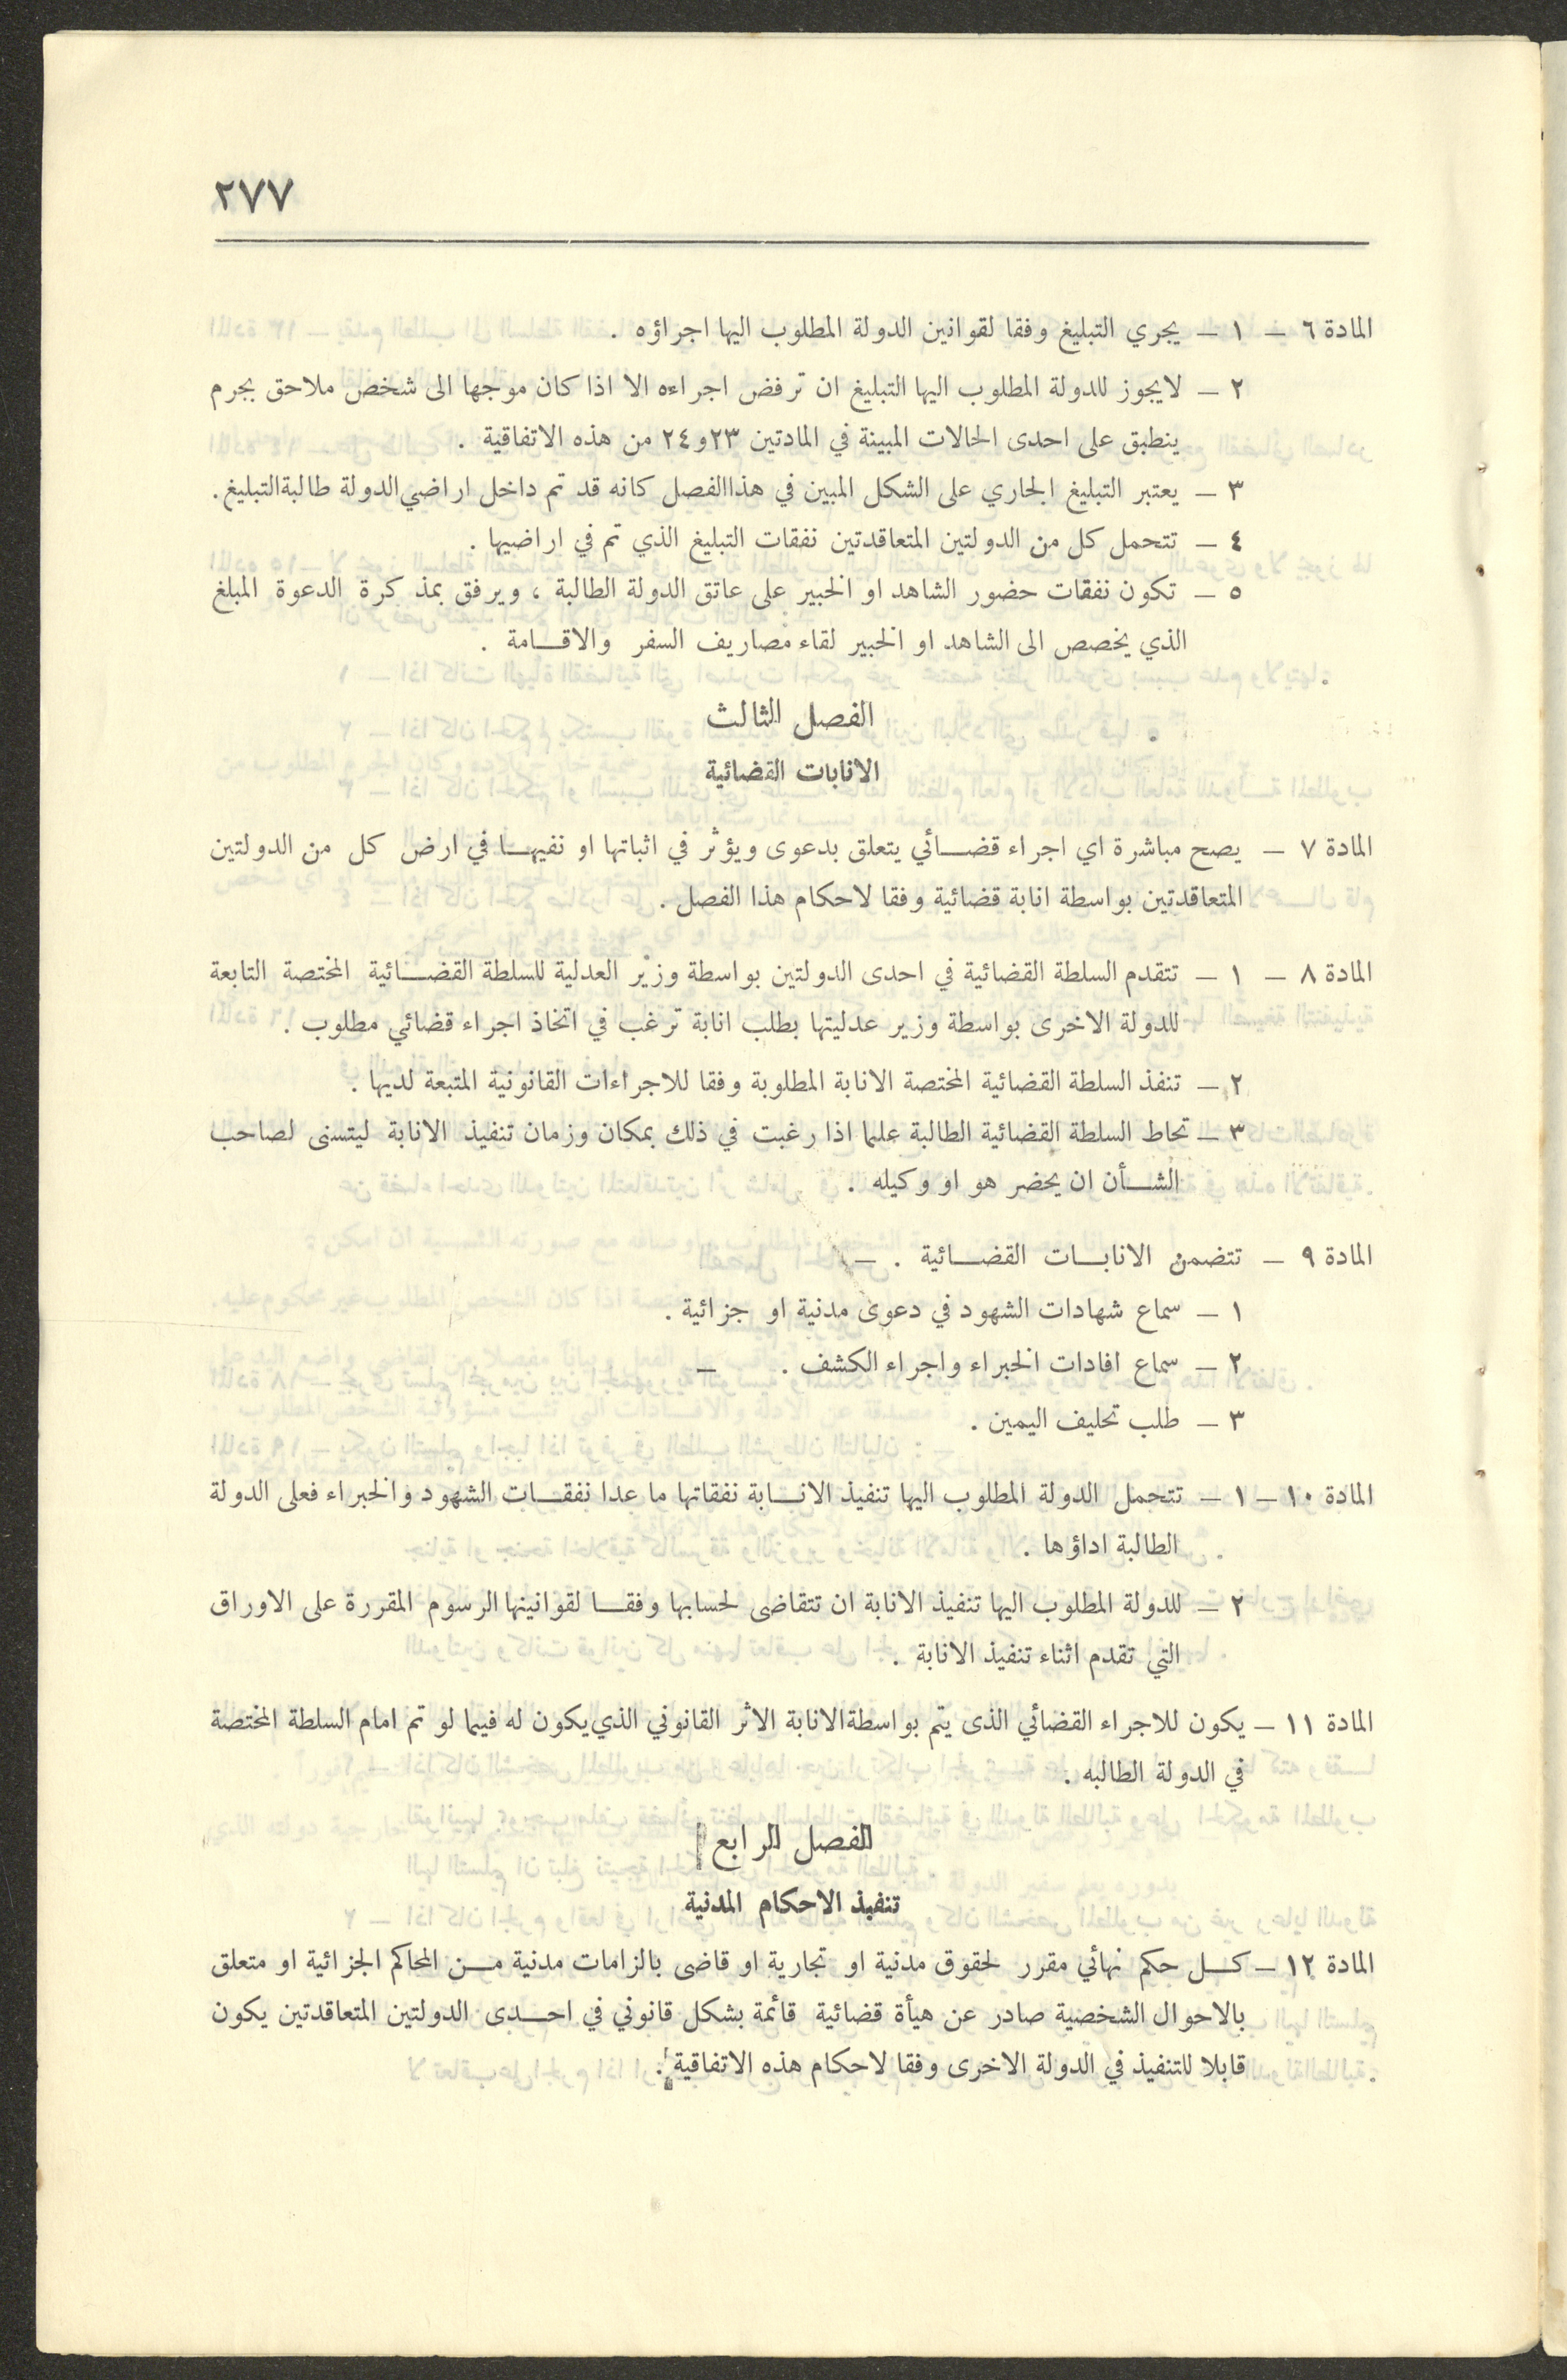 ٢٧٧
المادة ٦ — ١ — يجري التبليغ وفقا لقوانين الدولة المطلوب اليها اجراؤه .
٢ — لايجوز للدولة المطلوب اليها التبليغ ان ترفض اجراءه الا اذا كان موجها الى شخص ملاحق بجرم
ينطبق على احدى الحالات المبينة في المادتين ٢٣و٢٤ من هذه الاتفاقية .
٣ — يعتبر التبليغ الجاري على الشكل المبين في هذاالفصل كانه قد تم داخل اراضي الدولة طالبةالتبليغ.
٤ — تتحمل كل من الدولتين المتعاقدتين نفقات التبليغ الذي تم في اراضيها .
٥ — تكون نفقات حضور الشاهد او الخبير على عاتق الدولة الطالبة ، ويرفق بمذكرة الدعوة المبلغ
الذي يخصص الى الشاهد او الخبير لقاء مصاريف السفر والاقــامة .
الفصل الثالث
الانابات القضائية
المادة ٧ — يصح مباشرة اي اجراء قضــائي يتعلق بدعوى ويؤثر في اثباتها او نفيهــا في ارض كل من الدولتين
المتعاقدتين بواسطة انابة قضائية وفقا لاحكام هذا الفصل .
المادة ٨ — ١ — تتقدم السلطة القضائية في احدى الدولتين بواسطة وزير العدلية للسلطة القضــائية المختصة التابعة
للدولة الاخرى بواسطة وزير عدليتها بطلب انابة ترغب في اتخاذ اجراء قضائي مطلوب .
٢ — تنفذ السلطة القضائية المختصة الانابة المطلوبة وفقا للاجراءات القانونية المتبعة لديها .
٣ — تحاط السلطة القضائية الطالبة علما اذا رغبت في ذلك بمكان وزمان تنفيذ الانابة ليتسنى لصاحب
الشــأن ان يحضر هو او وكيله .
المادة ٩ — تتضمن الانابــات القضــائية . —
١ — سماع شهادات الشهود في دعوى مدنية او جزائية .
٢ — سماع افادات الخبراء واجراء الكشف . —
٣ — طلب تحليف اليمين .
المادة ١٠ — ١ — تتحمل الدولة المطلوب اليها تنفيذ الانــابة نفقاتها ما عدا نفقــات الشهود والخبراء فعلى الدولة
الطالبة اداؤها .
٢ — للدولة المطلوب اليها تنفيذ الانابة ان تتقاضى لحسابها وفقــا لقوانينها الرسوم المقررة على الاوراق
التي تقدم اثناء تنفيذ الانابة .
المادة ١١ — يكون للاجراء القضائي الذى يتم بواسطةالانابة الاثر القانوني الذي يكون له فيما لو تم امام السلطة المختصة
في الدولة الطالبه .
الفصل الرابع
تنفيذ الاحكام المدنية
المادة ١٢ — كــل حكم نهائي مقرر لحقوق مدنية او تجارية او قاضى بالزامات مدنية مــن المحاكم الجزائية او متعلق
بالاحوال الشخصية صادر عن هيأة قضائية قائمة بشكل قانوني في احــدى الدولتين المتعاقدتين يكون
قابلا للتنفيذ في الدولة الاخرى وفقا لاحكام هذه الاتفاقية .